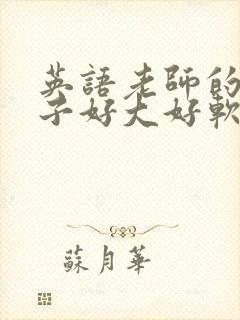 英語老師的
子好大好軟
蘇月華